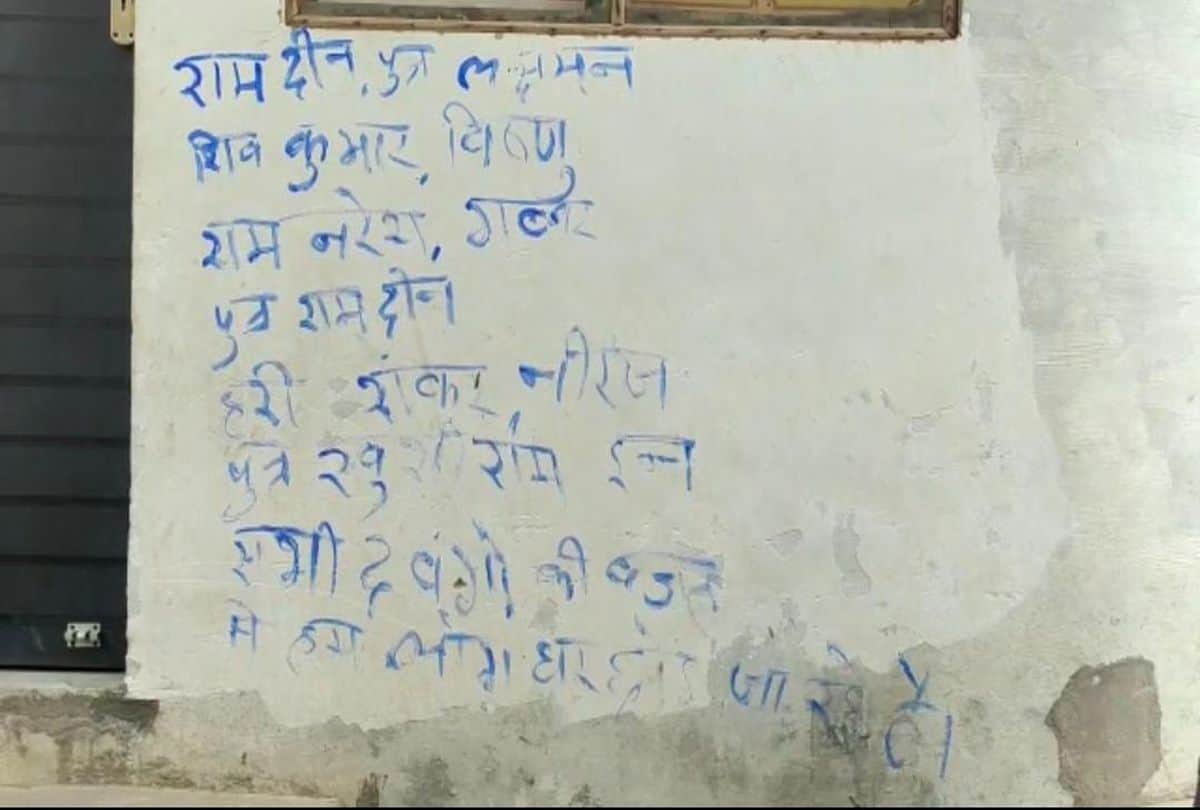 राम दीन, पुत्र लक्ष्मन
शिव कुमार, विष्णु
राम नरेश, गब्बर
पुत्र राम दीन
हरी शंकर, नीरज
पुत्र खुशी राम इन
सभी दबंगो की वजह
से हम लोग घर छोड़ जा रहे है।